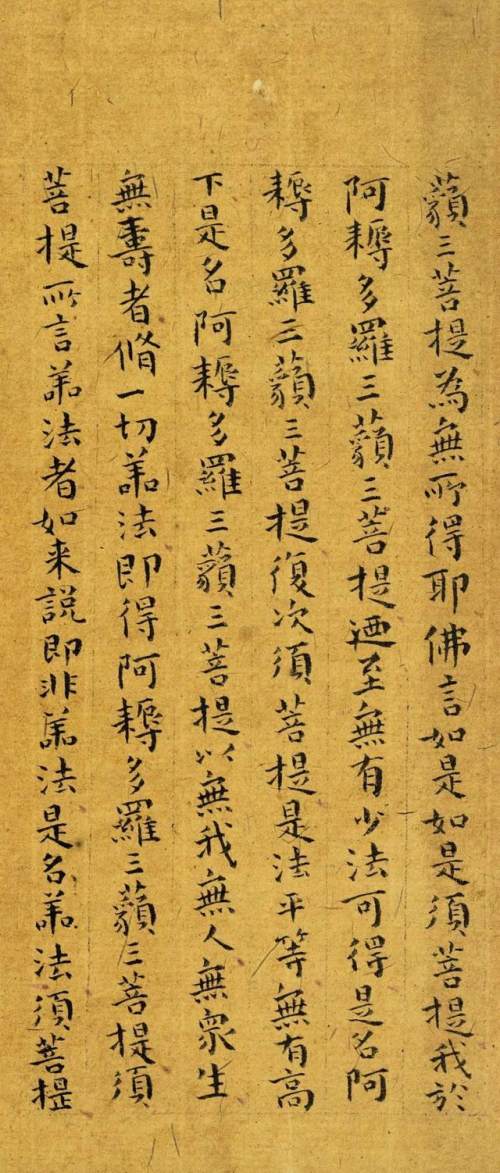 藐三菩提為無所得耶佛言如是如是須菩提我於
阿耨多羅三藐三菩提迺至無有少法可得是名阿
耨多羅三藐三菩提復次須菩提是法平等無有高
下是名阿耨多羅三藐三菩提以無我無人無衆生
無壽者脩一切善法即得阿耨多羅三藐三菩提須
菩提所言善法者如来說即非善法是名善法須菩提